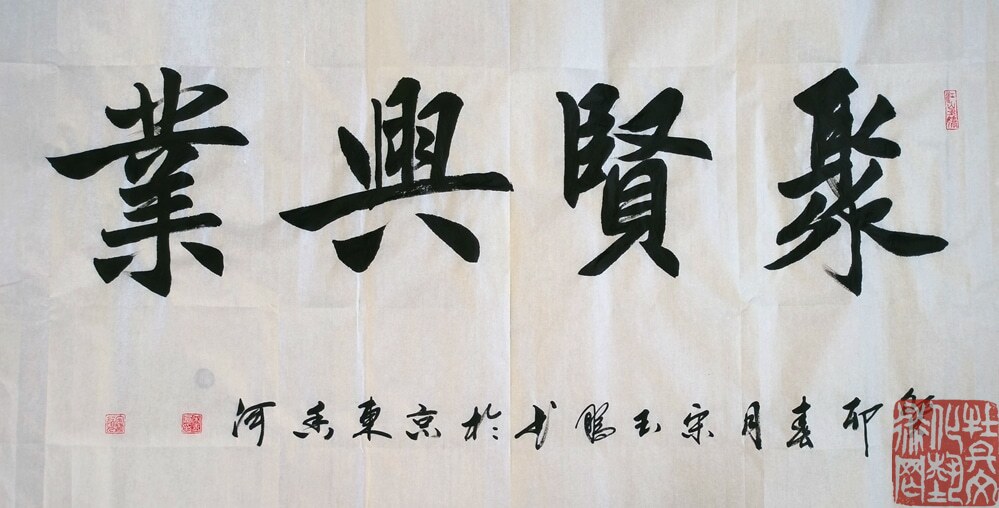 聚賢興業
卯春月宋玉聡书於京東香河